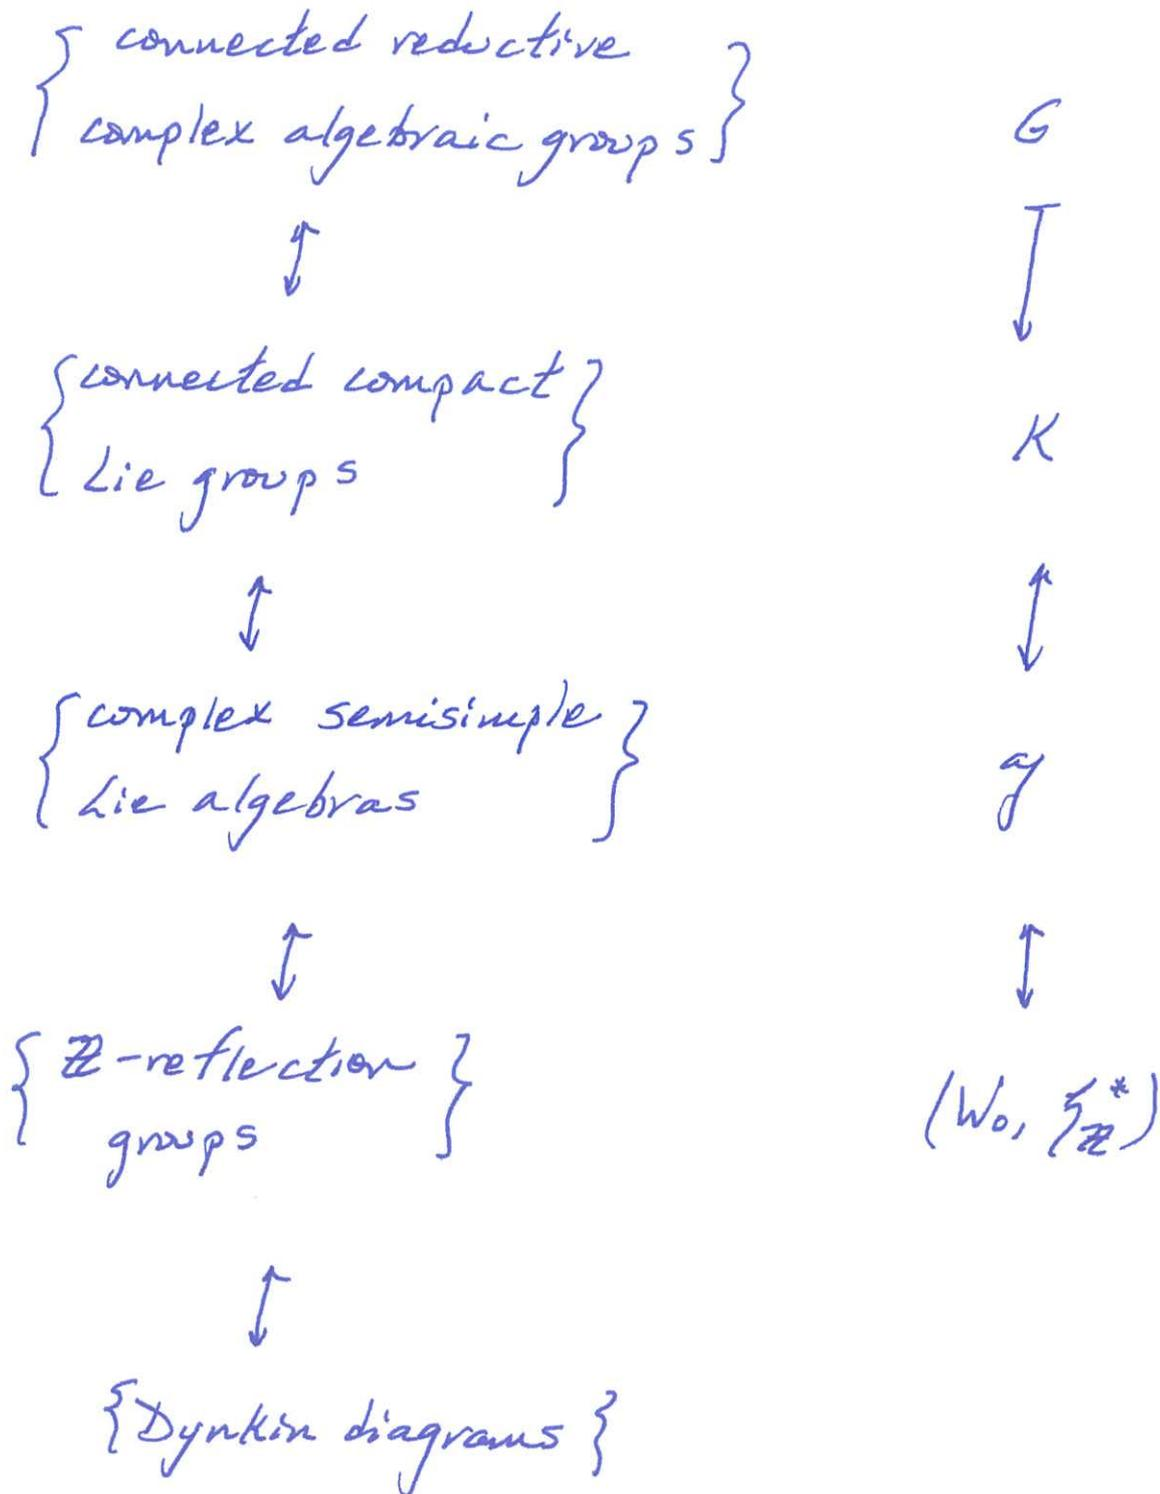 { connected reductive
complex algebraic groups } G
↕ ↦
{ connected compact
Lie groups } K
↕ ↕
{ complex semisimple
Lie algebras } 𝔤
↕ ↕
{ ℤ-reflection
groups } (W₀, 𝔥*_ℤ)
↕
{Dynkin diagrams}